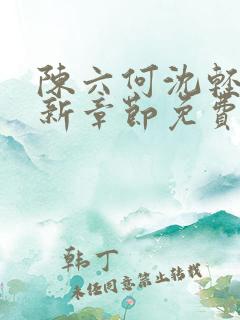 陳六何沈輕
新章節免費
韩丁
未经同意禁止转载